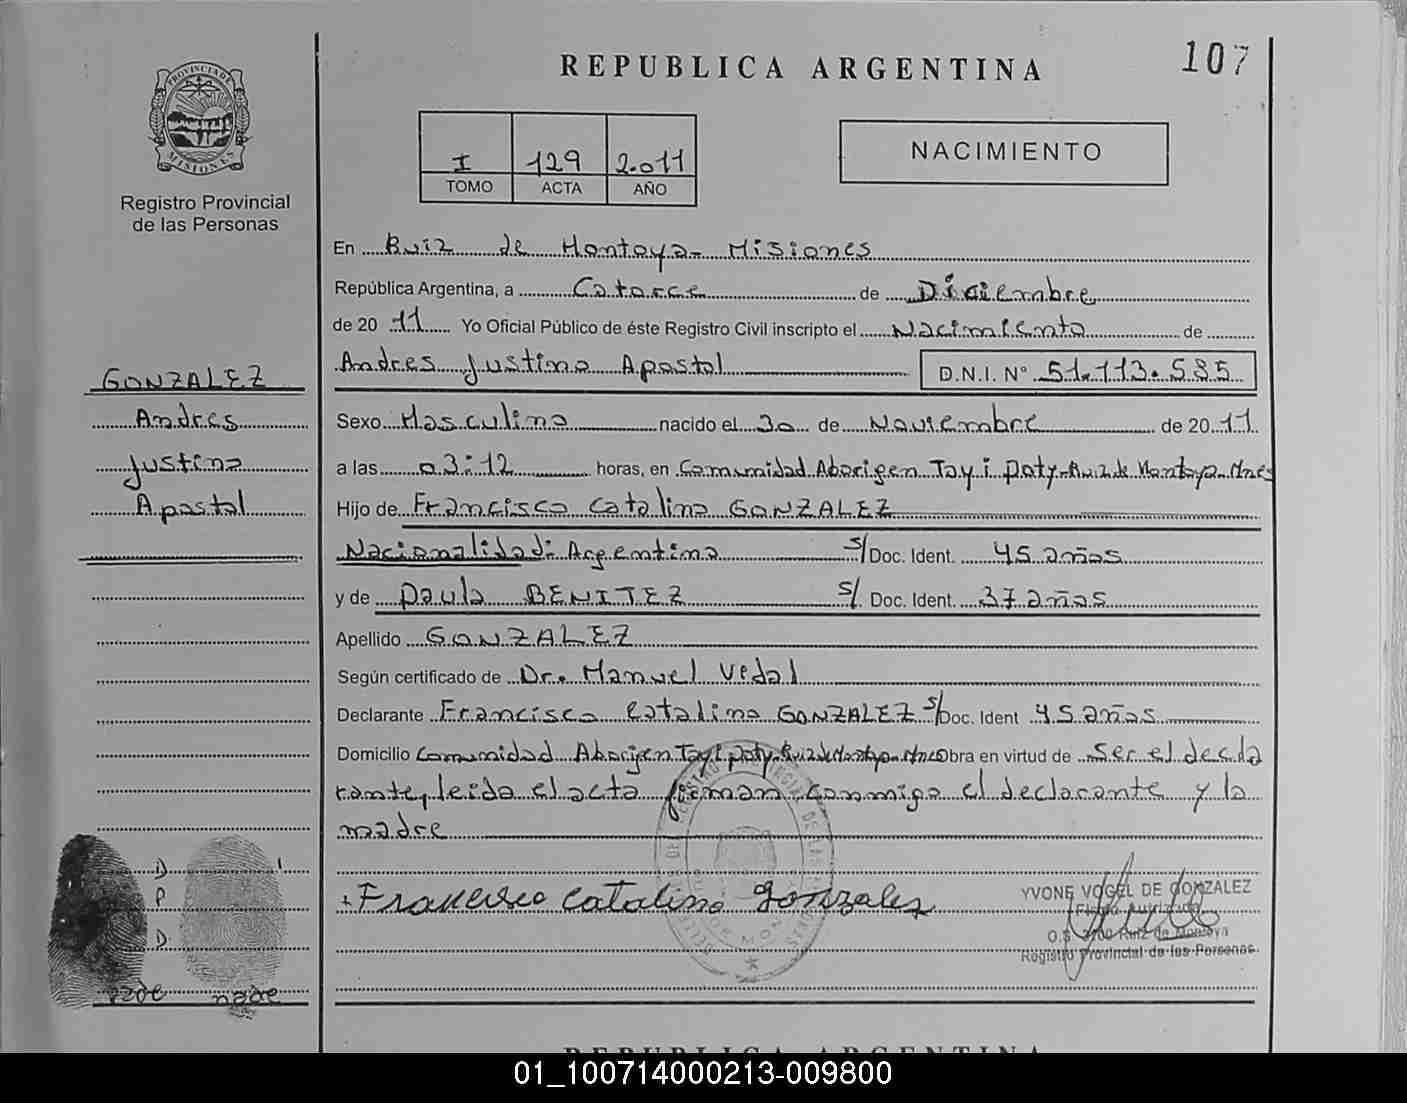 REPUBLICA ARGENTINA
107
PROVINCIA DE
MISIONES
Registro Provincial
de las Personas
I 129 2.011
TOMO ACTA AÑO
NACIMIENTO
En Ruiz de Montoya - Misiones
República Argentina, a Catorce de Diciembre
de 20 11 Yo Oficial Público de éste Registro Civil inscripto el Nacimiento de
Andres Justino Apostol D.N.I. N° 51.113.585
GONZALEZ
Andres
Justino
Apostol
Sexo Masculino nacido el 30 de Noviembre de 20 11
a las 03:12 horas, en Comunidad Aborigen Tayi poty-Ruiz de Montoya-Mnes
Hijo de Francisco Catalino GONZALEZ
Nacionalidad: Argentina s/ Doc. Ident. 45 años
y de Paula BENITEZ s/ Doc. Ident. 37 años
Apellido GONZALEZ
Según certificado de Dr. Manuel Vedal
Declarante Francisco Catalino GONZALEZ s/ Doc. Ident 45 años
Domicilio Comunidad Aborijen Tayi poty-Ruiz de Montoya-Mnes Obra en virtud de ser el decla
rante, leida el acta firman conmigo el declarante y la
madre
D
P
D
padre madre
+ Francisco Catalino Gonzalez
YVONE VOGEL DE GONZALEZ
Firma Autorizada
O.S. 3700 Ruiz de Montoya
Registro Provincial de las Personas
REPUBLICA ARGENTINA
01_100714000213-009800